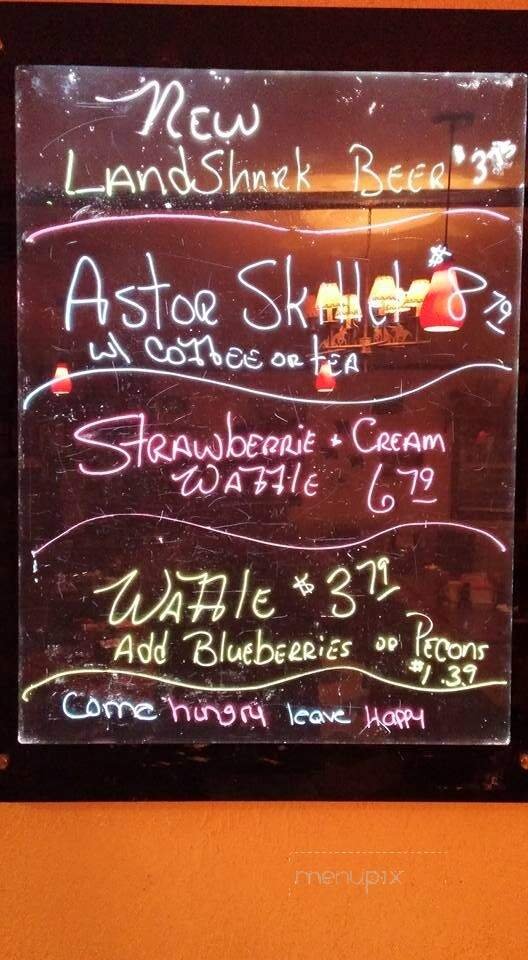 New
LandShark Beer $3.75
Astor Skillet $8.79
w/ Coffee or tea
Strawberrie + Cream
Waffle 6.79
Waffle $3.79
Add Blueberries or Pecons
$1.39
Come hungry leave Happy
menupix